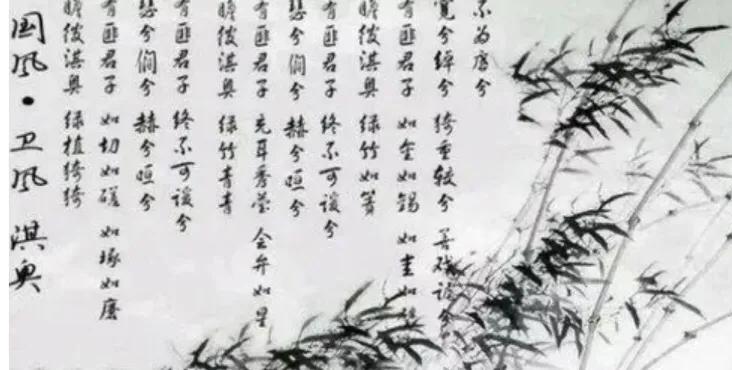 国风·卫风 淇奥
瞻彼淇奥 绿植猗猗
有匪君子 如切如磋 如琢如磨
兮僩兮 赫兮晅兮
有匪君子 终不可谖兮
瞻彼淇奥 绿竹青青
有匪君子 充耳秀莹 会弁如星
兮僩兮 赫兮晅兮
有匪君子 终不可谖兮
瞻彼淇奥 绿竹如箦
有匪君子 如金如锡 如圭如
宽兮绰兮 猗重较兮 善戏谑兮
不为虐兮